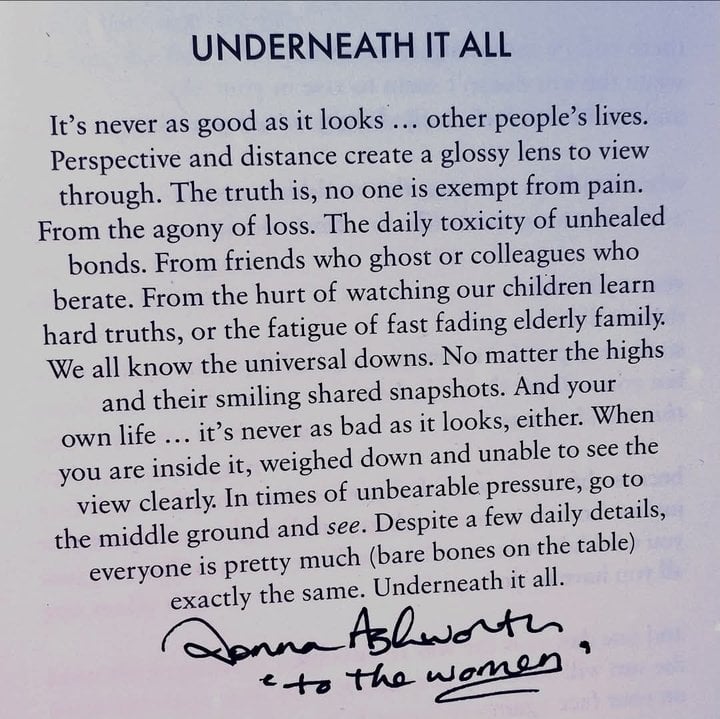 UNDERNEATH IT ALL
It’s never as good as it looks ... other people’s lives.
Perspective and distance create a glossy lens to view
through. The truth is, no one is exempt from pain.
From the agony of loss. The daily toxicity of unhealed
bonds. From friends who ghost or colleagues who
berate. From the hurt of watching our children learn
hard truths, or the fatigue of fast fading elderly family.
We all know the universal downs. No matter the highs
and their smiling shared snapshots. And your
own life ... it’s never as bad as it looks, either. When
you are inside it, weighed down and unable to see the
view clearly. In times of unbearable pressure, go to
the middle ground and see. Despite a few daily details,
everyone is pretty much (bare bones on the table)
exactly the same. Underneath it all.
Donna Ashworth
‘to the women’